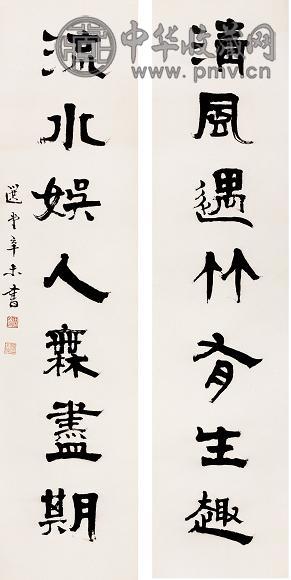 中华收藏网
www.pmv.cn
清風遇竹有生趣
流水娛人無盡期
選堂辛未書